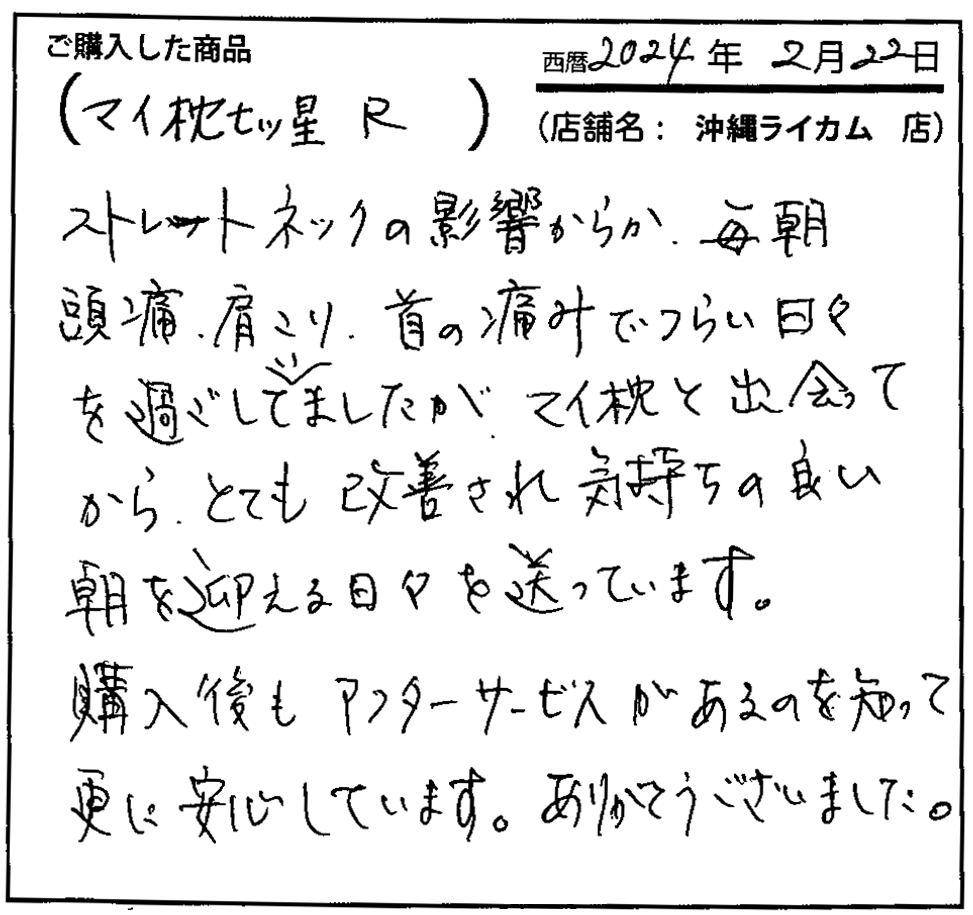 ご購入した商品
西暦2024年 2月22日
(マイ枕セッ星 R )
(店舗名: 沖縄ライカム 店)
ストレートネックの影響からか、毎朝
頭痛、肩こり、首の痛みでつらい日々
を過ごしていましたが、マイ枕と出会って
から、とても改善され気持ちの良い
朝を迎える日々を送っています。
購入後もアフターサービスがあるのを知って
更に安心しています。ありがとうございました。